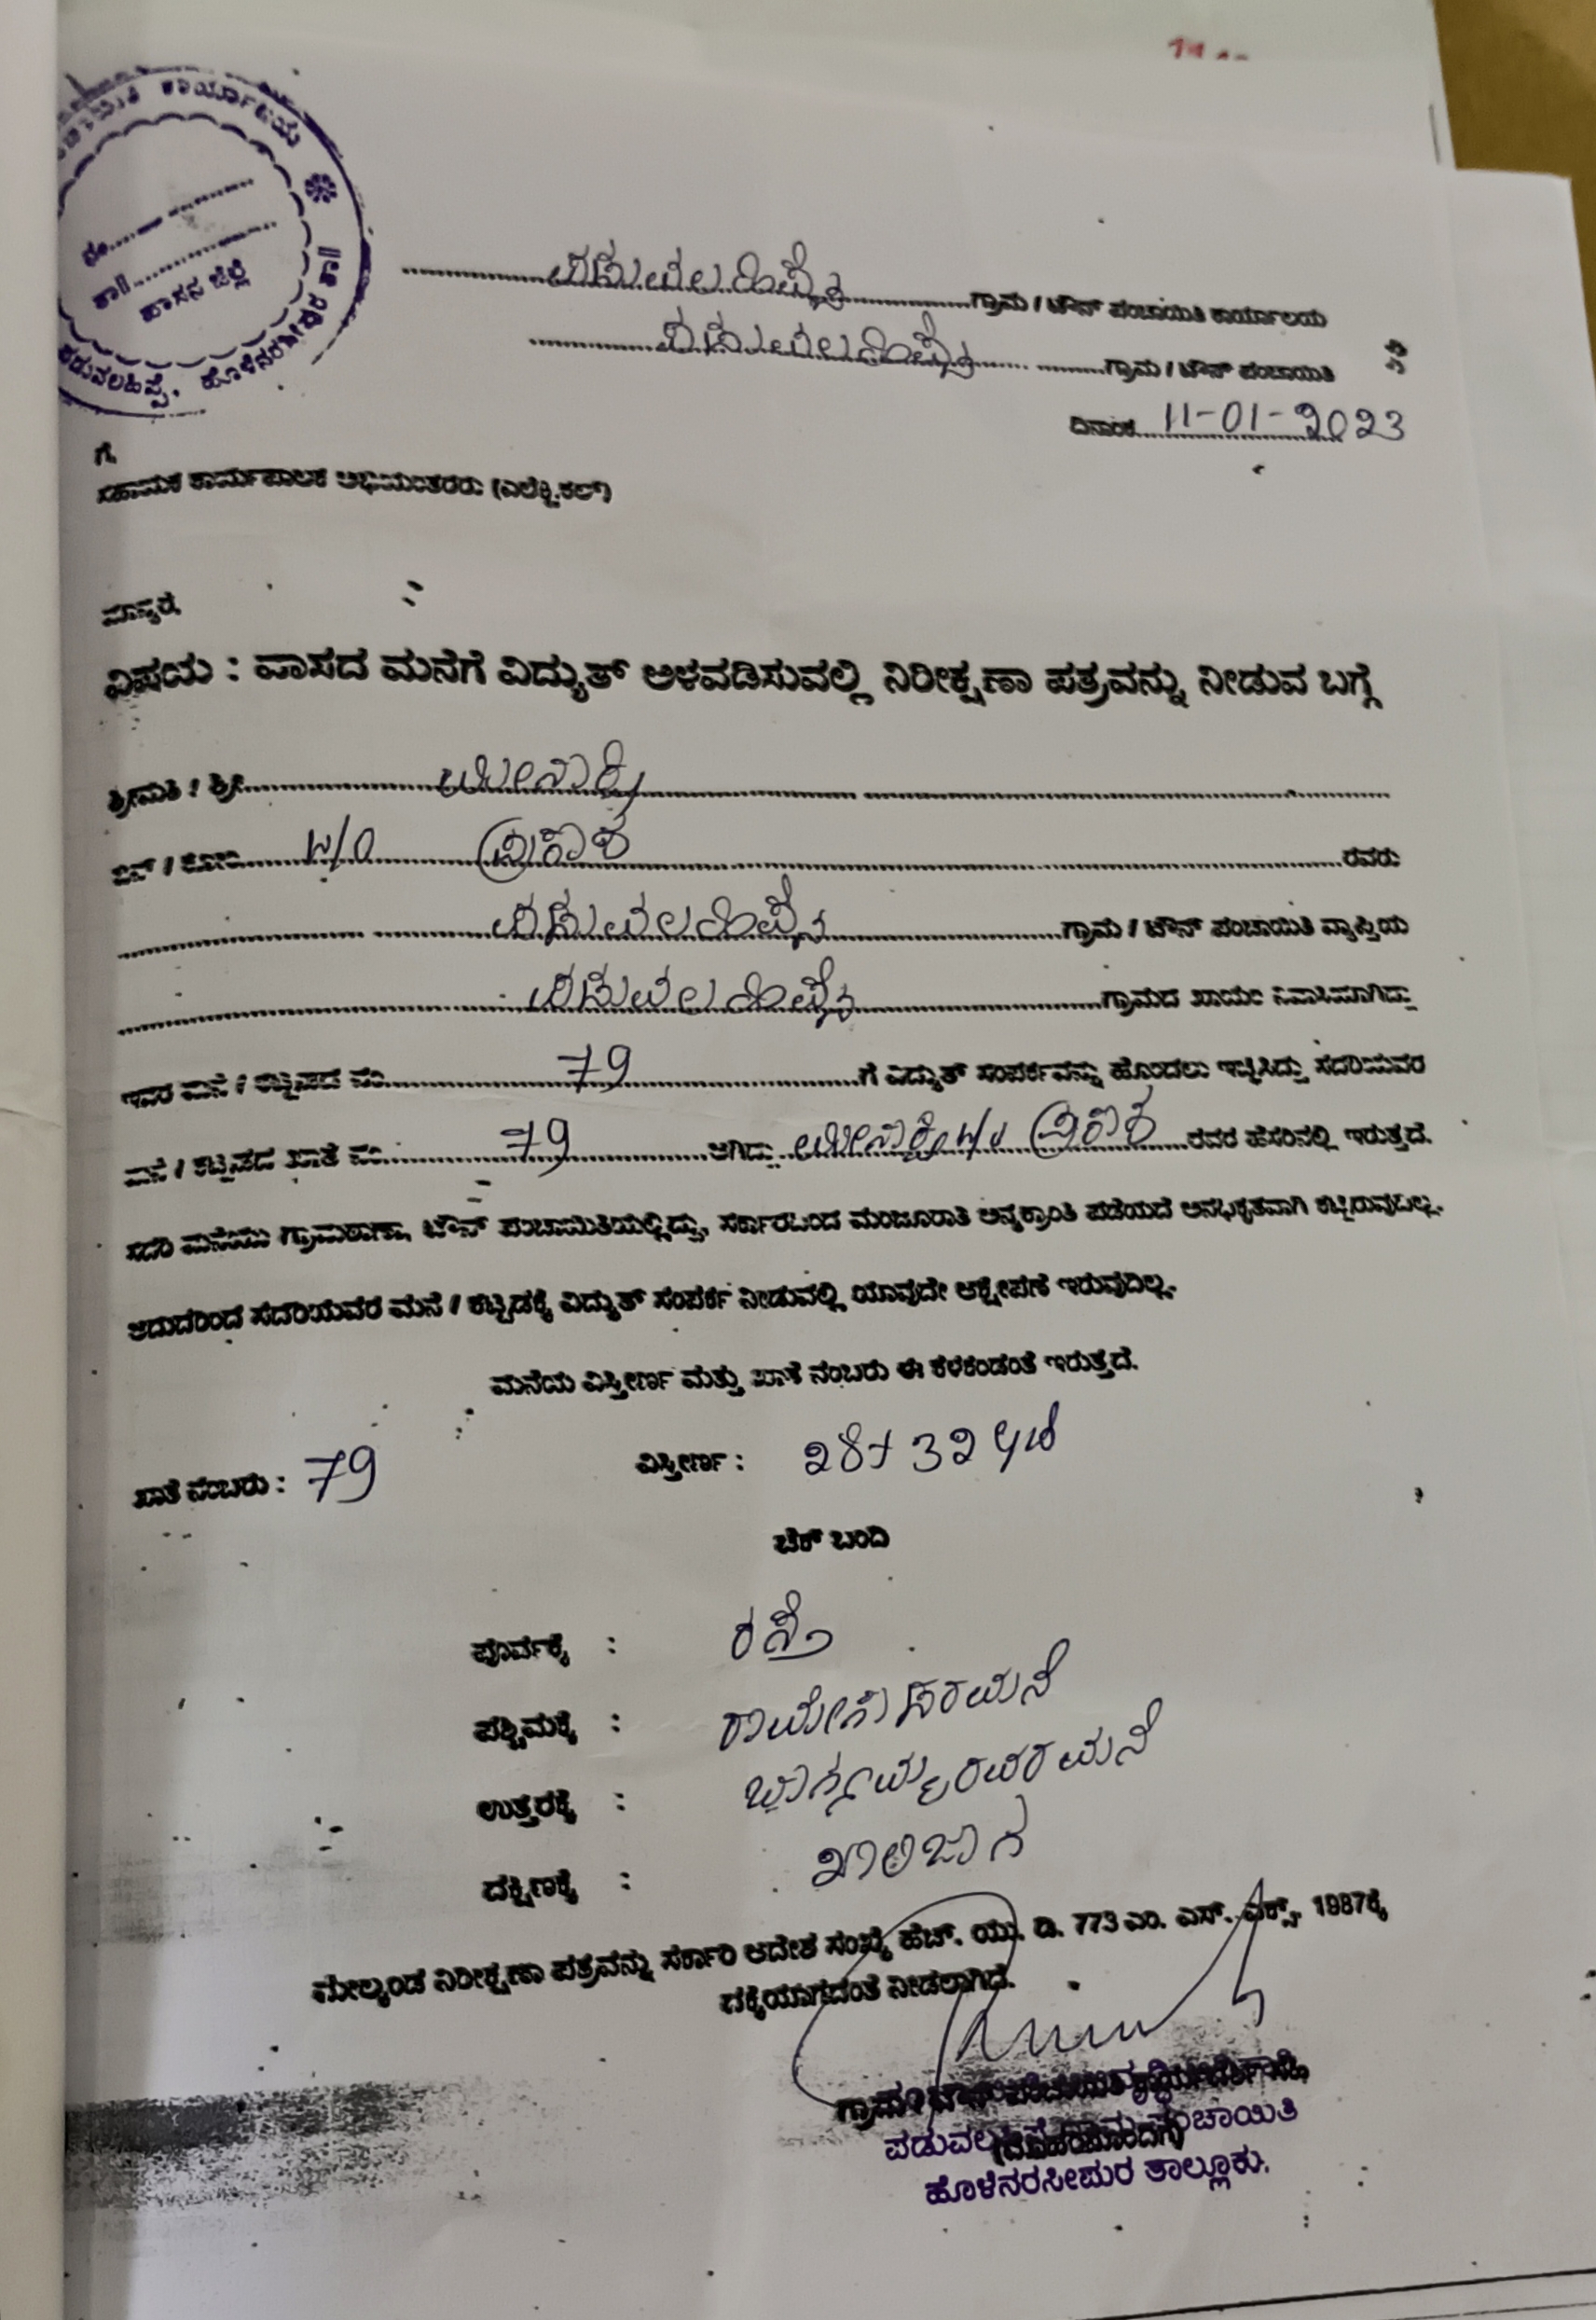 ಕಾರ್ಯಾಲಯ
ನಂ.................
ತಾ||.................
ಹಾಸನ ಜಿಲ್ಲೆ
ಪಡುವಲಹಿಪ್ಪೆ, ಹೊಳೆನರಸೀಪುರ ತಾ||
ಪಡುವಲಹಿಪ್ಪೆ ಗ್ರಾಮ / ಟೌನ್ ಪಂಚಾಯಿತಿ ಕಾರ್ಯಾಲಯ
ಪಡುವಲಹಿಪ್ಪೆ ಗ್ರಾಮ / ಟೌನ್ ಪಂಚಾಯಿತಿ
ದಿನಾಂಕ 11-01-2023
ಗೆ,
ಸಹಾಯಕ ಕಾರ್ಯಪಾಲಕ ಅಭಿಯಂತರರು (ಎಲೆಕ್ಟ್ರಿಕಲ್)
ಮಾನ್ಯರೆ,
ವಿಷಯ : ವಾಸದ ಮನೆಗೆ ವಿದ್ಯುತ್ ಅಳವಡಿಸುವಲ್ಲಿ ನಿರೀಕ್ಷಣಾ ಪತ್ರವನ್ನು ನೀಡುವ ಬಗ್ಗೆ
ಶ್ರೀಮತಿ / ಶ್ರೀ ಮೀನಾಕ್ಷಿ
ಬಿನ್ / ಕೋಂ W/O ಪ್ರಕಾಶ ರವರು
ಪಡುವಲಹಿಪ್ಪೆ ಗ್ರಾಮ / ಟೌನ್ ಪಂಚಾಯಿತಿ ವ್ಯಾಪ್ತಿಯ
ಪಡುವಲಹಿಪ್ಪೆ ಗ್ರಾಮದ ಖಾಯಂ ನಿವಾಸಿಯಾಗಿದ್ದು
ಇವರ ಮನೆ / ಕಟ್ಟಡದ ನಂ. 79 ಗೆ ವಿದ್ಯುತ್ ಸಂಪರ್ಕವನ್ನು ಹೊಂದಲು ಇಚ್ಛಿಸಿದ್ದು ಸದರಿಯವರ
ಮನೆ / ಕಟ್ಟಡದ ಖಾತೆ ನಂ. 79 ಆಗಿದ್ದು ಮೀನಾಕ್ಷಿ W/o ಪ್ರಕಾಶ ರವರ ಹೆಸರಿನಲ್ಲಿ ಇರುತ್ತದೆ.
ಸದರಿ ಮನೆಯು ಗ್ರಾಮಠಾಣಾ, ಟೌನ್ ಪಂಚಾಯಿತಿಯಲ್ಲಿದ್ದು, ಸರ್ಕಾರದಿಂದ ಮಂಜೂರಾತಿ ಅನ್ಯಕ್ರಾಂತಿ ಪಡೆಯದೆ ಅನಧಿಕೃತವಾಗಿ ಕಟ್ಟಿರುವುದಿಲ್ಲ.
ಆದುದರಿಂದ ಸದರಿಯವರ ಮನೆ / ಕಟ್ಟಡಕ್ಕೆ ವಿದ್ಯುತ್ ಸಂಪರ್ಕ ನೀಡುವಲ್ಲಿ ಯಾವುದೇ ಆಕ್ಷೇಪಣೆ ಇರುವುದಿಲ್ಲ.
ಮನೆಯ ವಿಸ್ತೀರ್ಣ ಮತ್ತು ಖಾತೆ ನಂಬರು ಈ ಕೆಳಕಂಡಂತೆ ಇರುತ್ತದೆ.
ಖಾತೆ ನಂಬರು : 79 ವಿಸ್ತೀರ್ಣ : 28+32
ಚೆಕ್ ಬಂದಿ
ಪೂರ್ವಕ್ಕೆ : ರಸ್ತೆ
ಪಶ್ಚಿಮಕ್ಕೆ :
ಉತ್ತರಕ್ಕೆ : ಭಾಗ್ಯಮ್ಮರವರ ಮನೆ
ದಕ್ಷಿಣಕ್ಕೆ : ಖಾಲಿಜಾಗ
ಮೇಲ್ಕಂಡ ನಿರೀಕ್ಷಣಾ ಪತ್ರವನ್ನು ಸರ್ಕಾರಿ ಆದೇಶ ಸಂಖ್ಯೆ ಹೆಚ್. ಯು. ಡಿ. 773 ಎಂ. ಎನ್. ಎಕ್ಸ್. 1987ಕ್ಕೆ
ಧಕ್ಕೆಯಾಗದಂತೆ ನೀಡಲಾಗಿದೆ.
ಪಡುವಲಹಿಪ್ಪೆ ಗ್ರಾಮ ಪಂಚಾಯಿತಿ
ಹೊಳೆನರಸೀಪುರ ತಾಲ್ಲೂಕು.